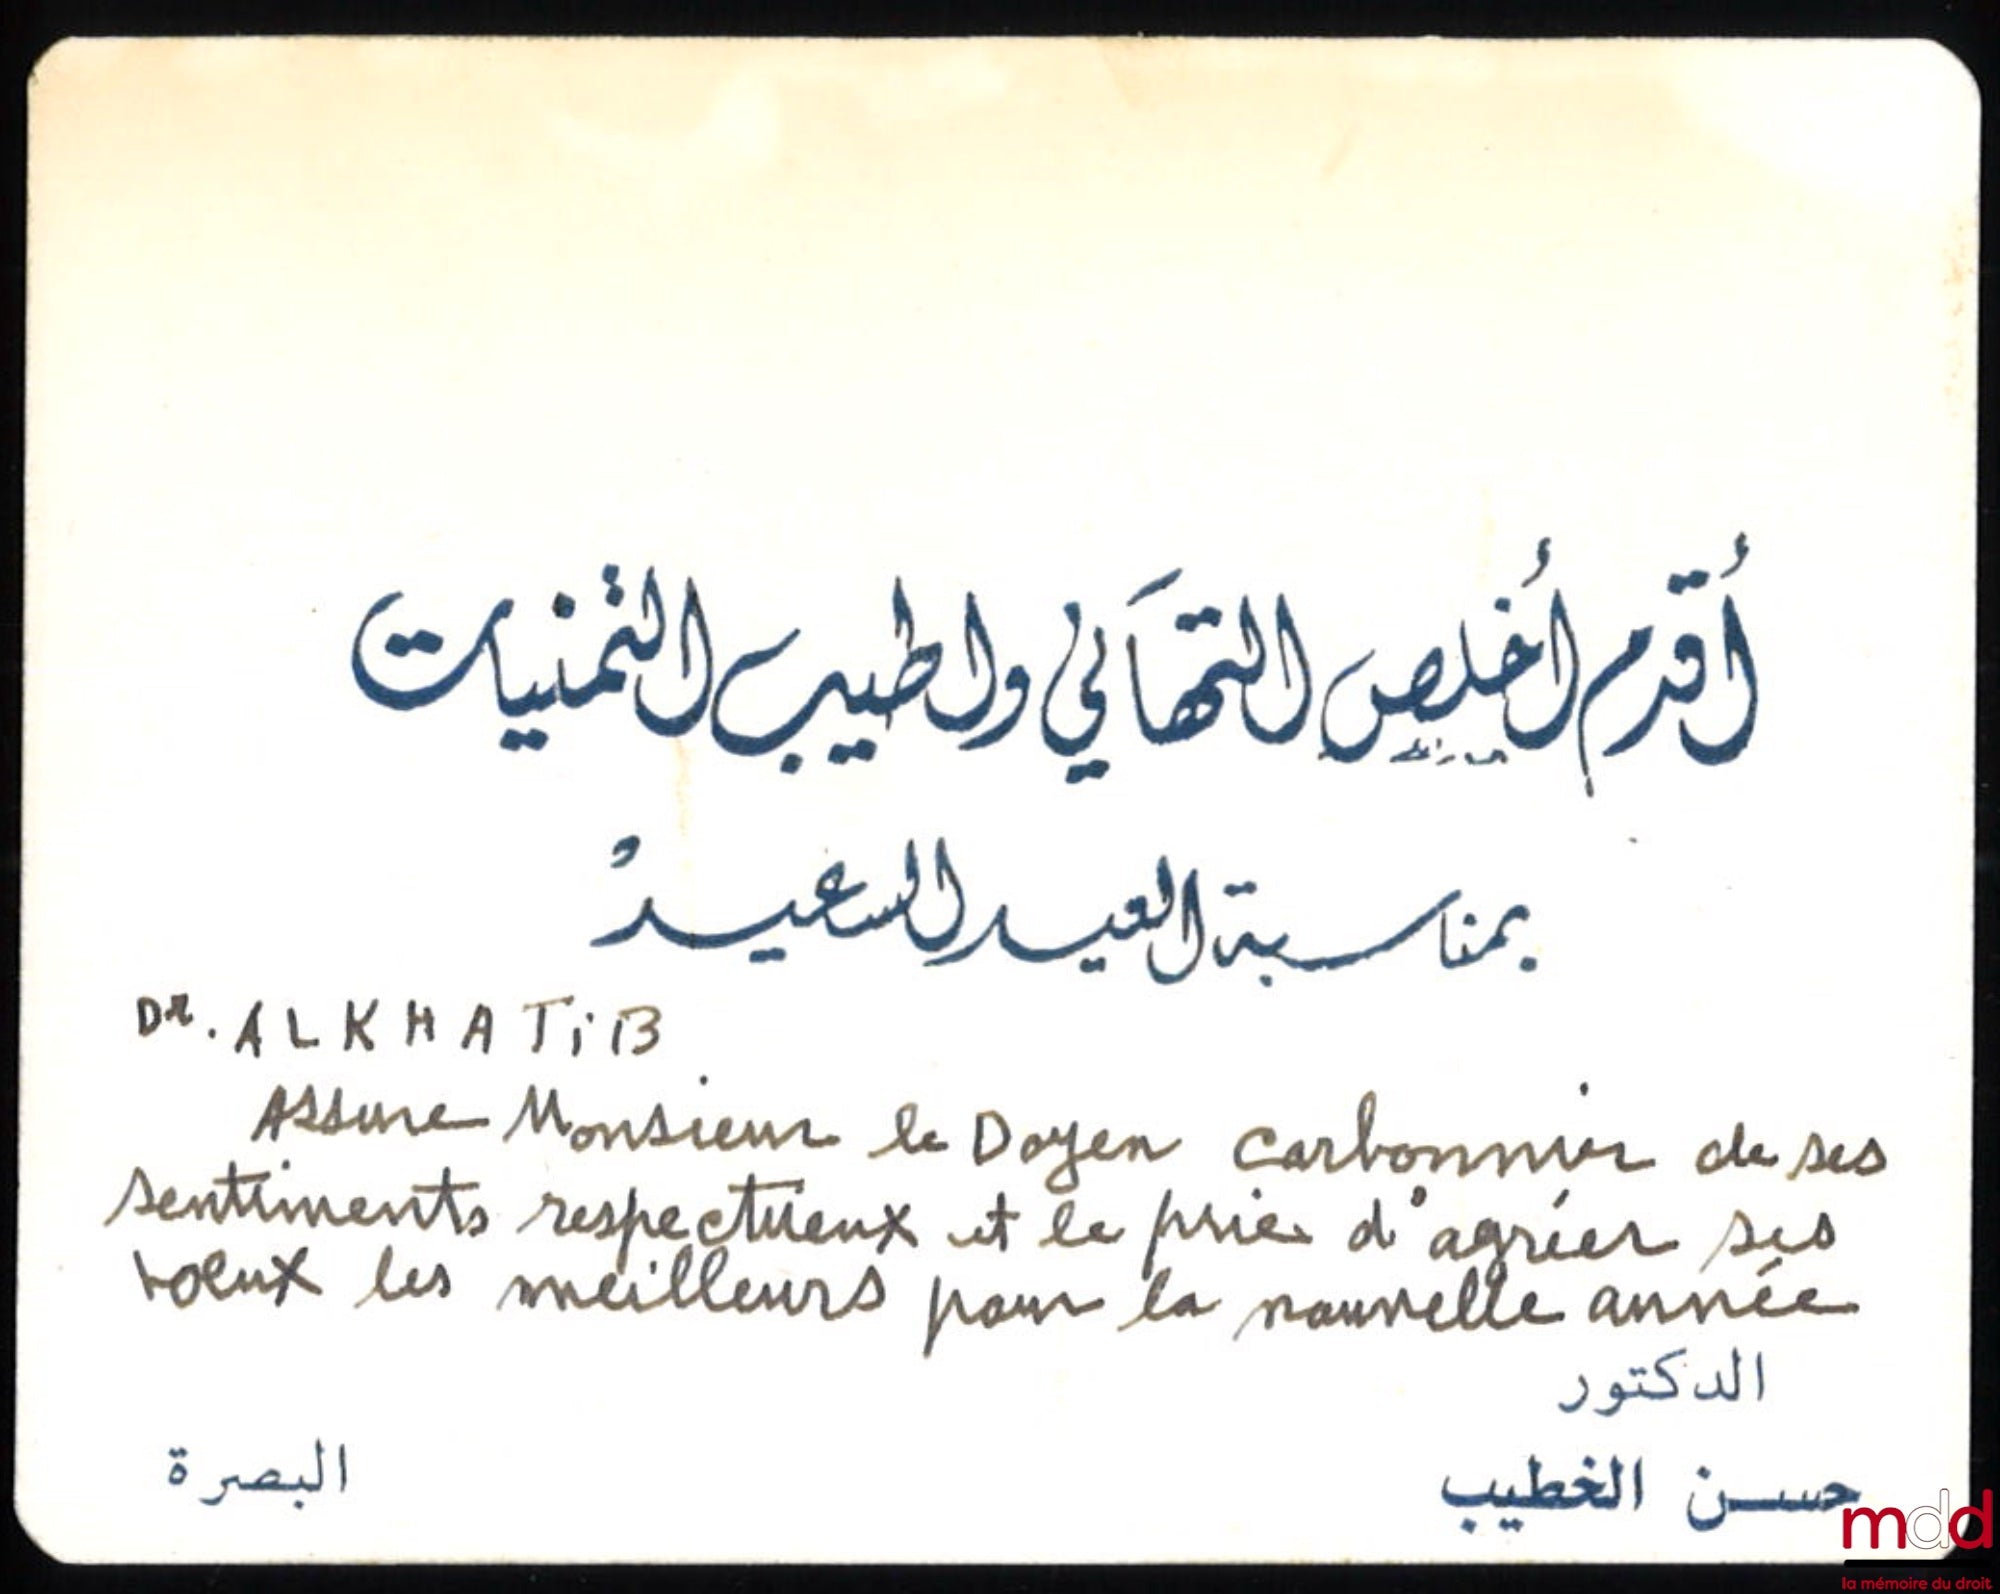 أُقدم أُخلص التهَاني واطيب التمنيات
بمناسبة العيد السعيد
Dr. ALKHATiB
Assure Monsieur le Doyen Carbonnier de ses
sentiments respectueux et le prie d'agréer ses
voeux les meilleurs pour la nouvelle année
الدكتور
حسن الخطيب
البصرة
mdd
la mémoire du droit